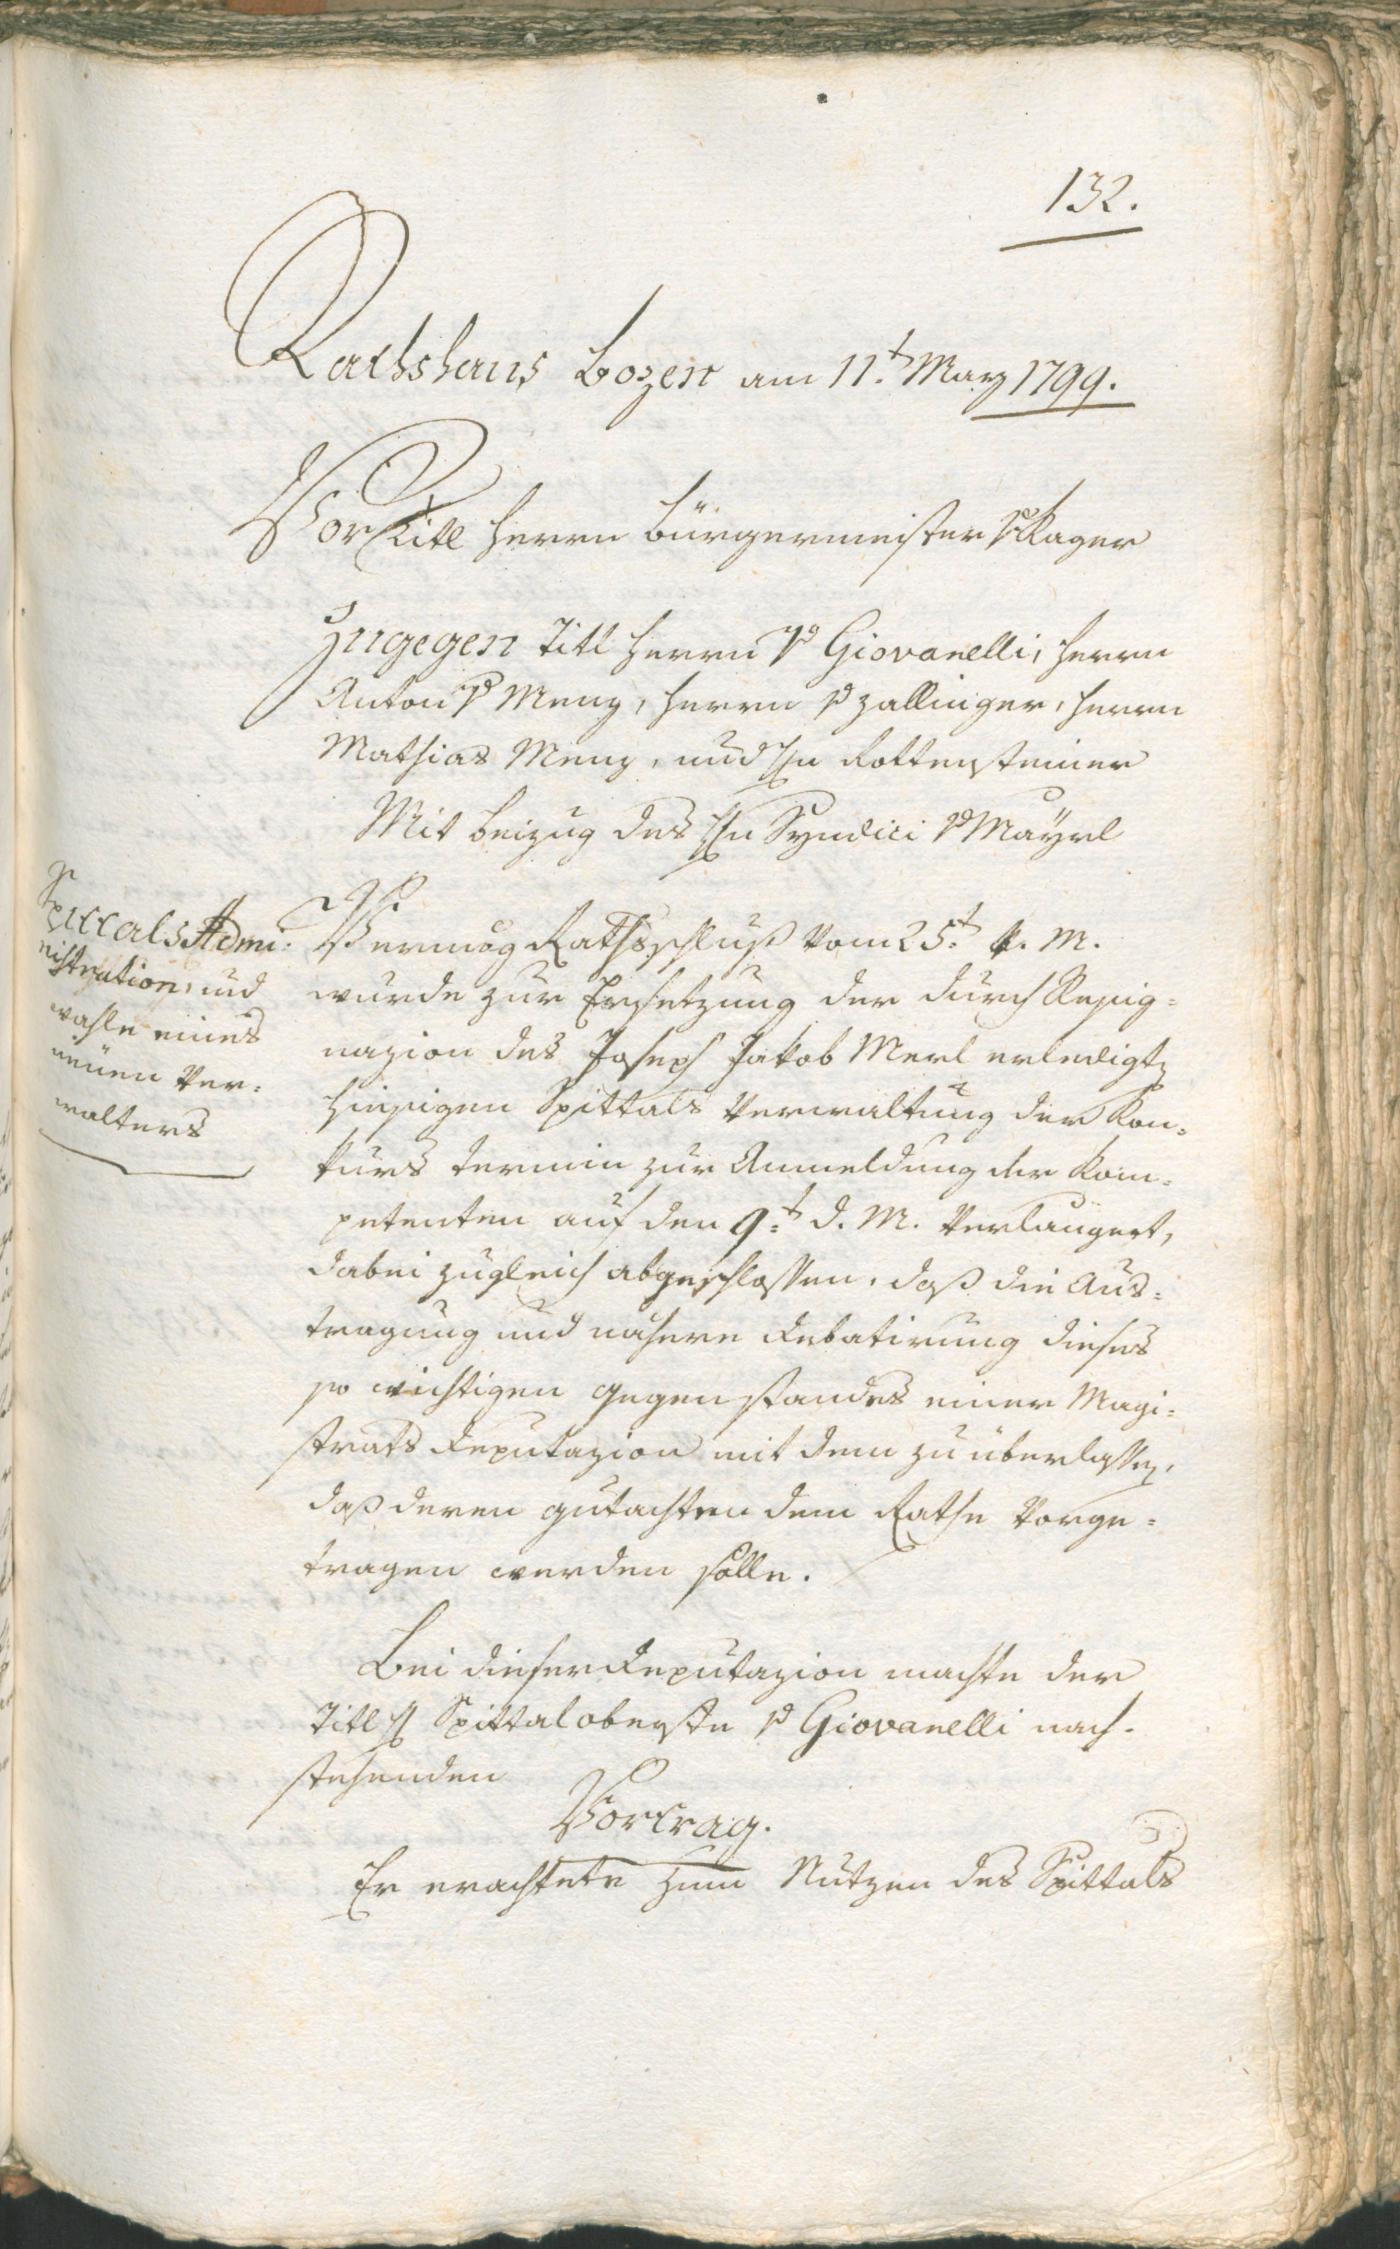 132.
Rathshaus Bozen am 11.t März 1799.
Vor Titl Herrn Bürgermeister v Kager
Zugegen Titl Herrn v Giovanelli, Herrn
Anton v Menz, Herrn v Zallinger, Herrn
Mathias Menz, und Hn Rottensteiner
Mit Beizug des Hn Syndici v Mayrl
Spittals Admi:
nistration, und
wahle eines
neüen Ver:
walters
Vermög Rathsschluß vom 25.t v. M.
wurde zur Ersetzung der durch Resig=
nazion des Joseph Jakob Merl erledigten
hiesigen Spittals Verwaltung der Kon=
kurs Termin zur Anmeldung der Kom=
petenten auf den 9.t d. M. verlängert,
dabei zugleich abgeschlossen, daß die Aus=
tragung und nähere Debatirung dieses
so wichtigen Gegenstandes einer Magi=
strats Deputazion mit dem zu überlassen,
daß deren Gutachten dem Rathe vorge=
tragen werden solle.
Bei dieser Deputazion machte der
Titl H Spittaloberste v Giovanelli nach=
stehenden
Vortrag.
Er erachtete zum Nutzen des Spittals